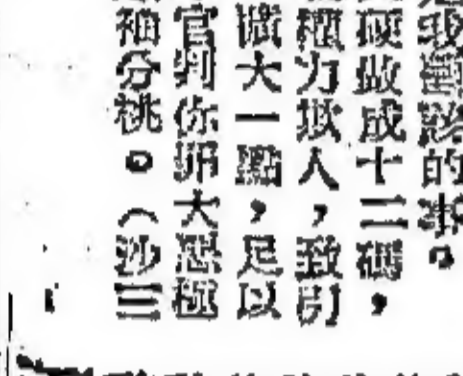 的事。
硬做成十二碼，
權力欺人，致引
擴大一點，足以
官判你罪大惡極
袖分桃。（沙三